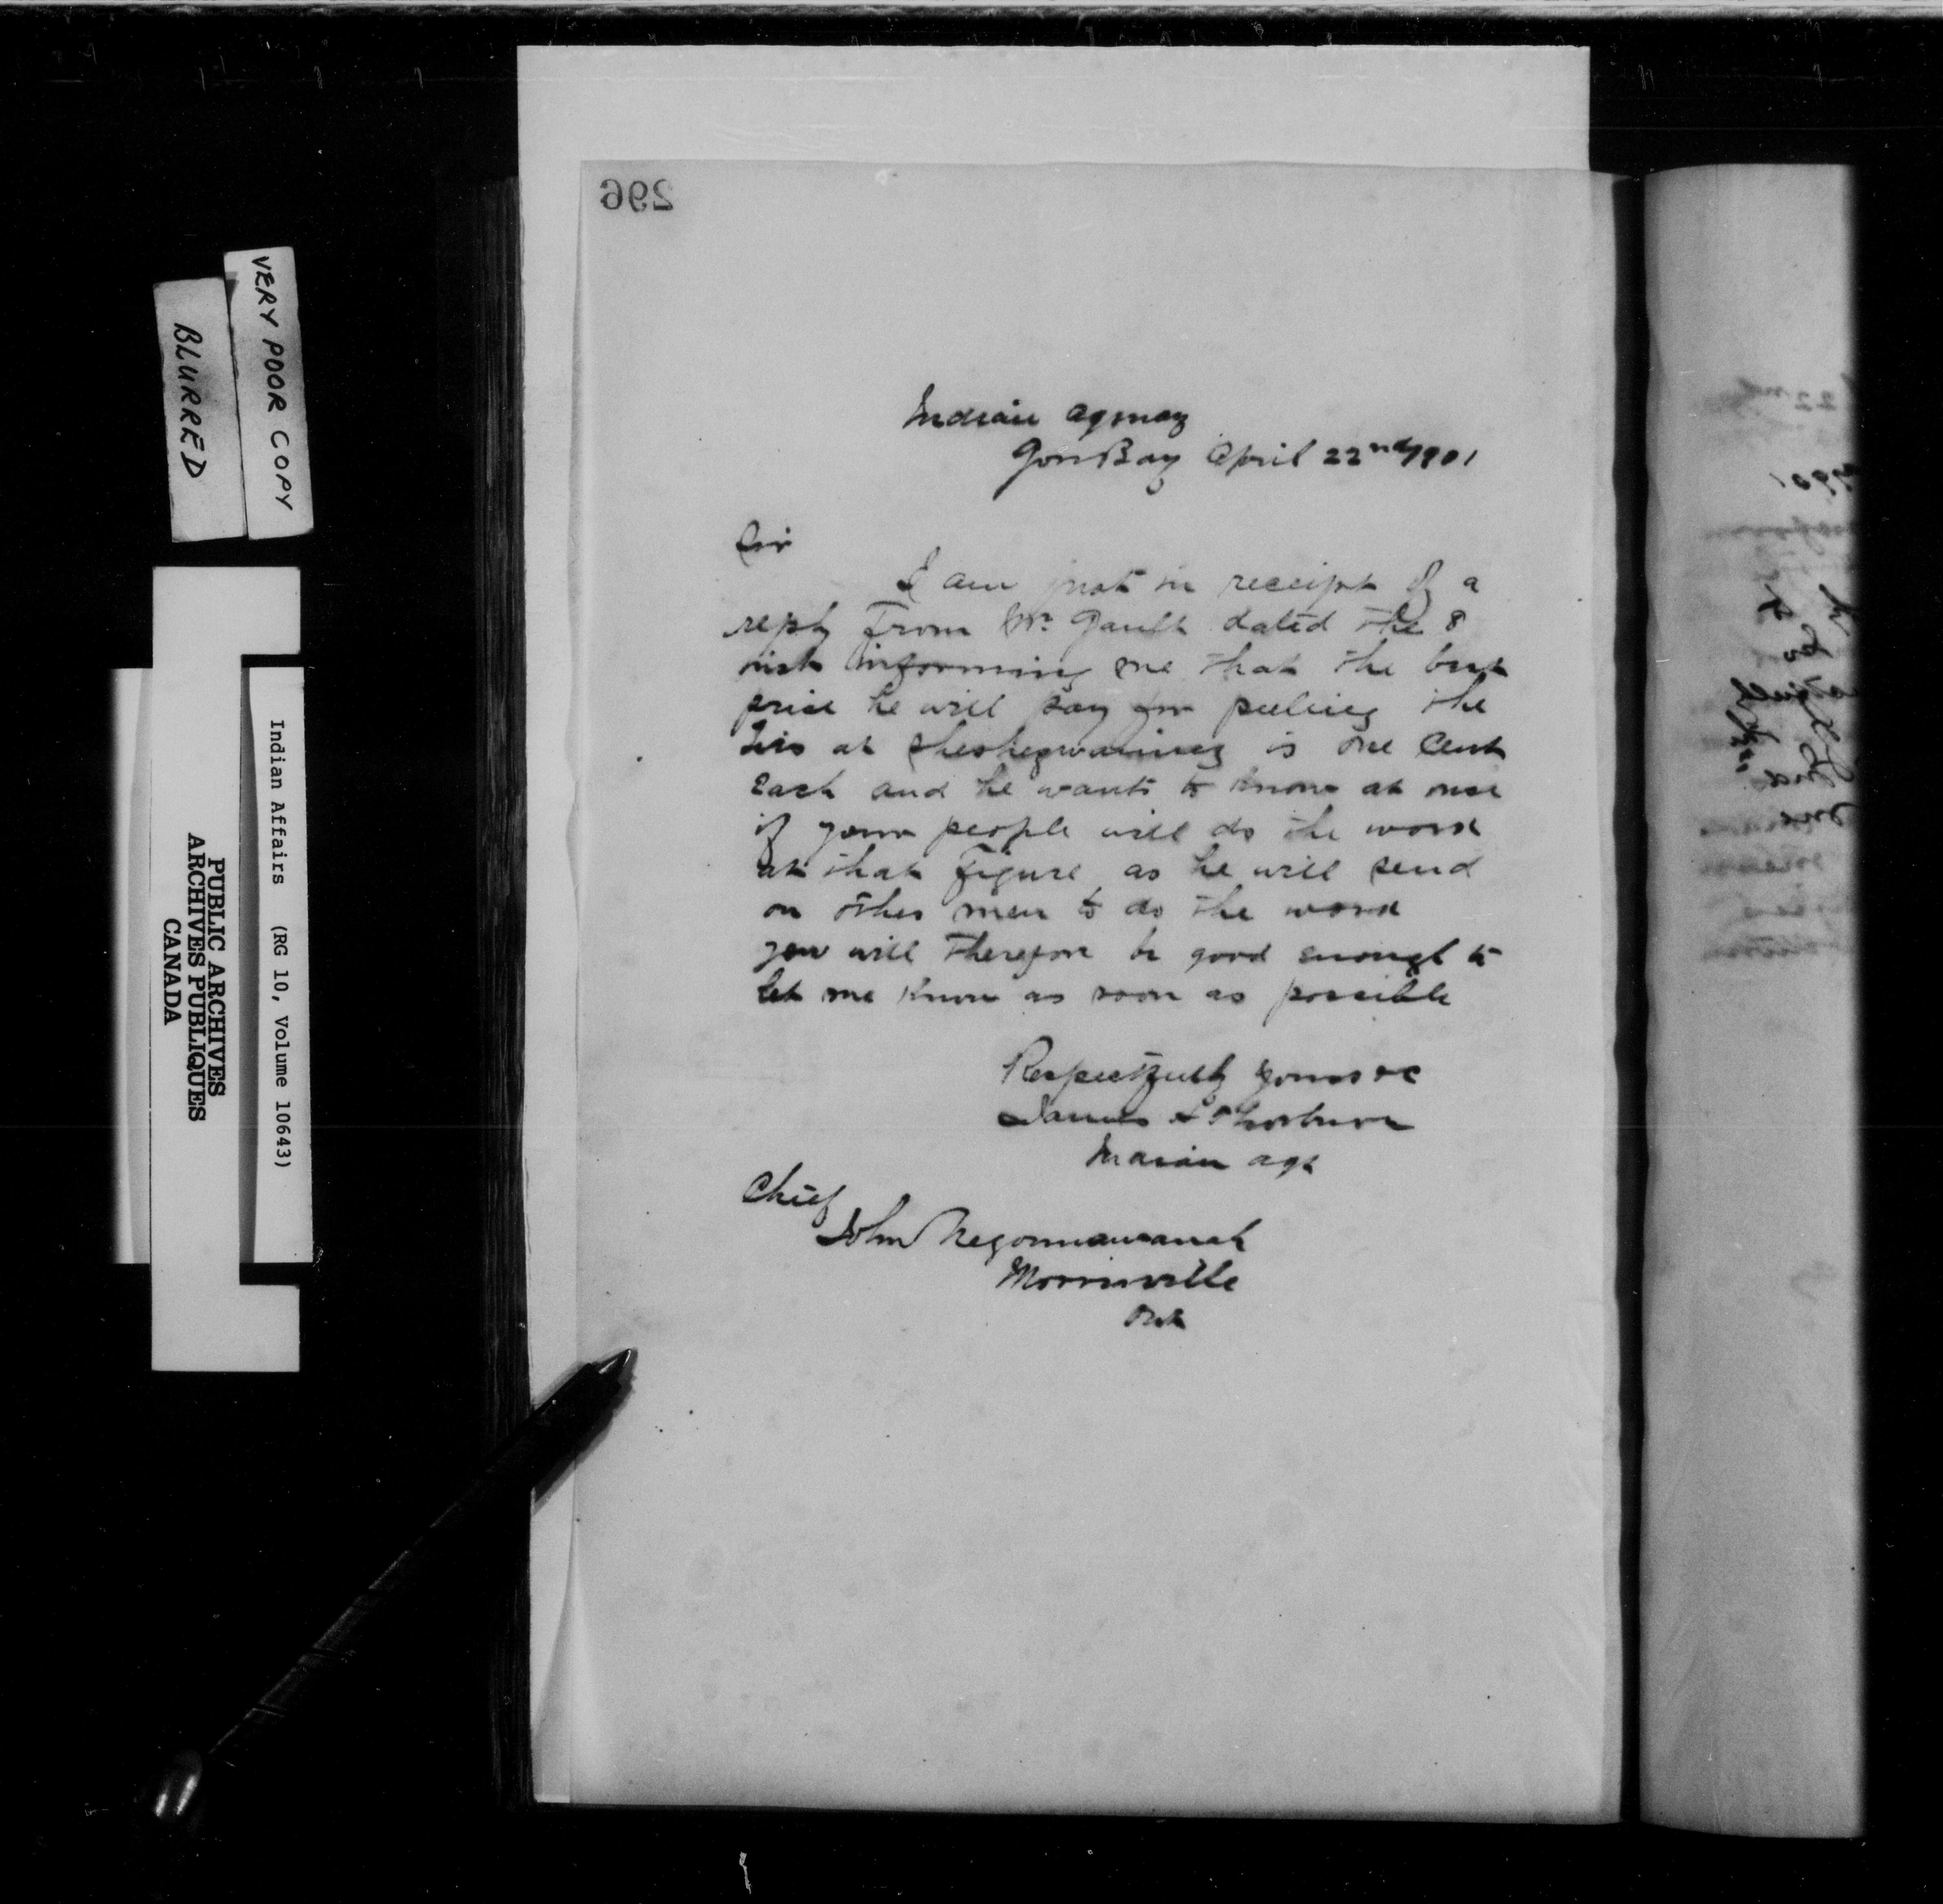 296
VERY POOR COPY
BLURRED
Indian Affairs (RG 10, Volume 10643)
PUBLIC ARCHIVES
ARCHIVES PUBLIQUES
CANADA
Indian Agency
Gore Bay April 22nd 1901
Sir
I am just in receipt of a
reply from Mr. Gault dated the 8
inst informing me that the best
price he will pay for peeling the
ties at Sheshegwaning is one Cent
Each and he wants to know at once
if your people will do the work
at that Figure as he will send
on other men to do the work
you will Therefore be good enough to
let me know as soon as possible
Respectfully yours &c
James H Thorburn
Indian Agt
Chief
John
Morrisville
Ont